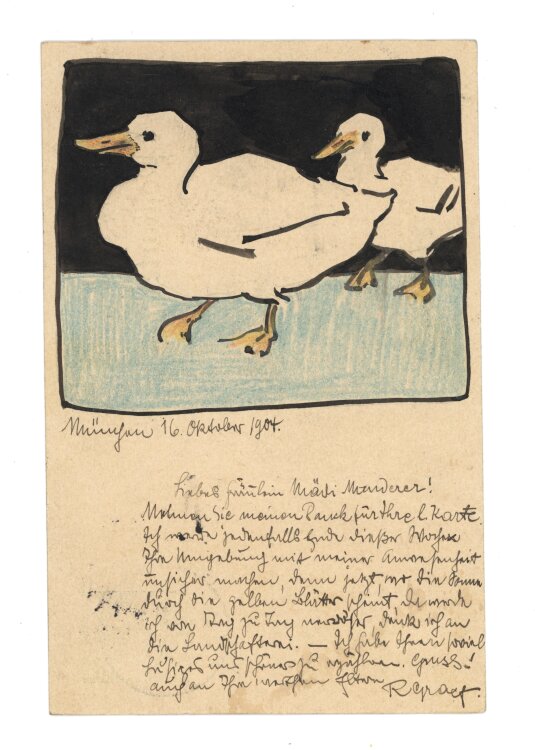 München 16. Oktober 1904.
Liebes Fräulein Mädi Manderer!
Nehmen Sie meinen Dank für Ihre l. Karte.
Ich werde jedenfalls Ende dieser Woche
Ihre Umgebung mit meiner Anwesenheit
unsicher machen, denn jetzt wo die Sonne
durch die gelben Blätter scheint, da werde
ich von Tag zu Tag nervöser, denk ich an
die Landschafterei. — Ich habe Ihnen soviel
Lustiges und schönes zu erzählen. Gruss!
auch an Ihre werthen Eltern
R Graef.